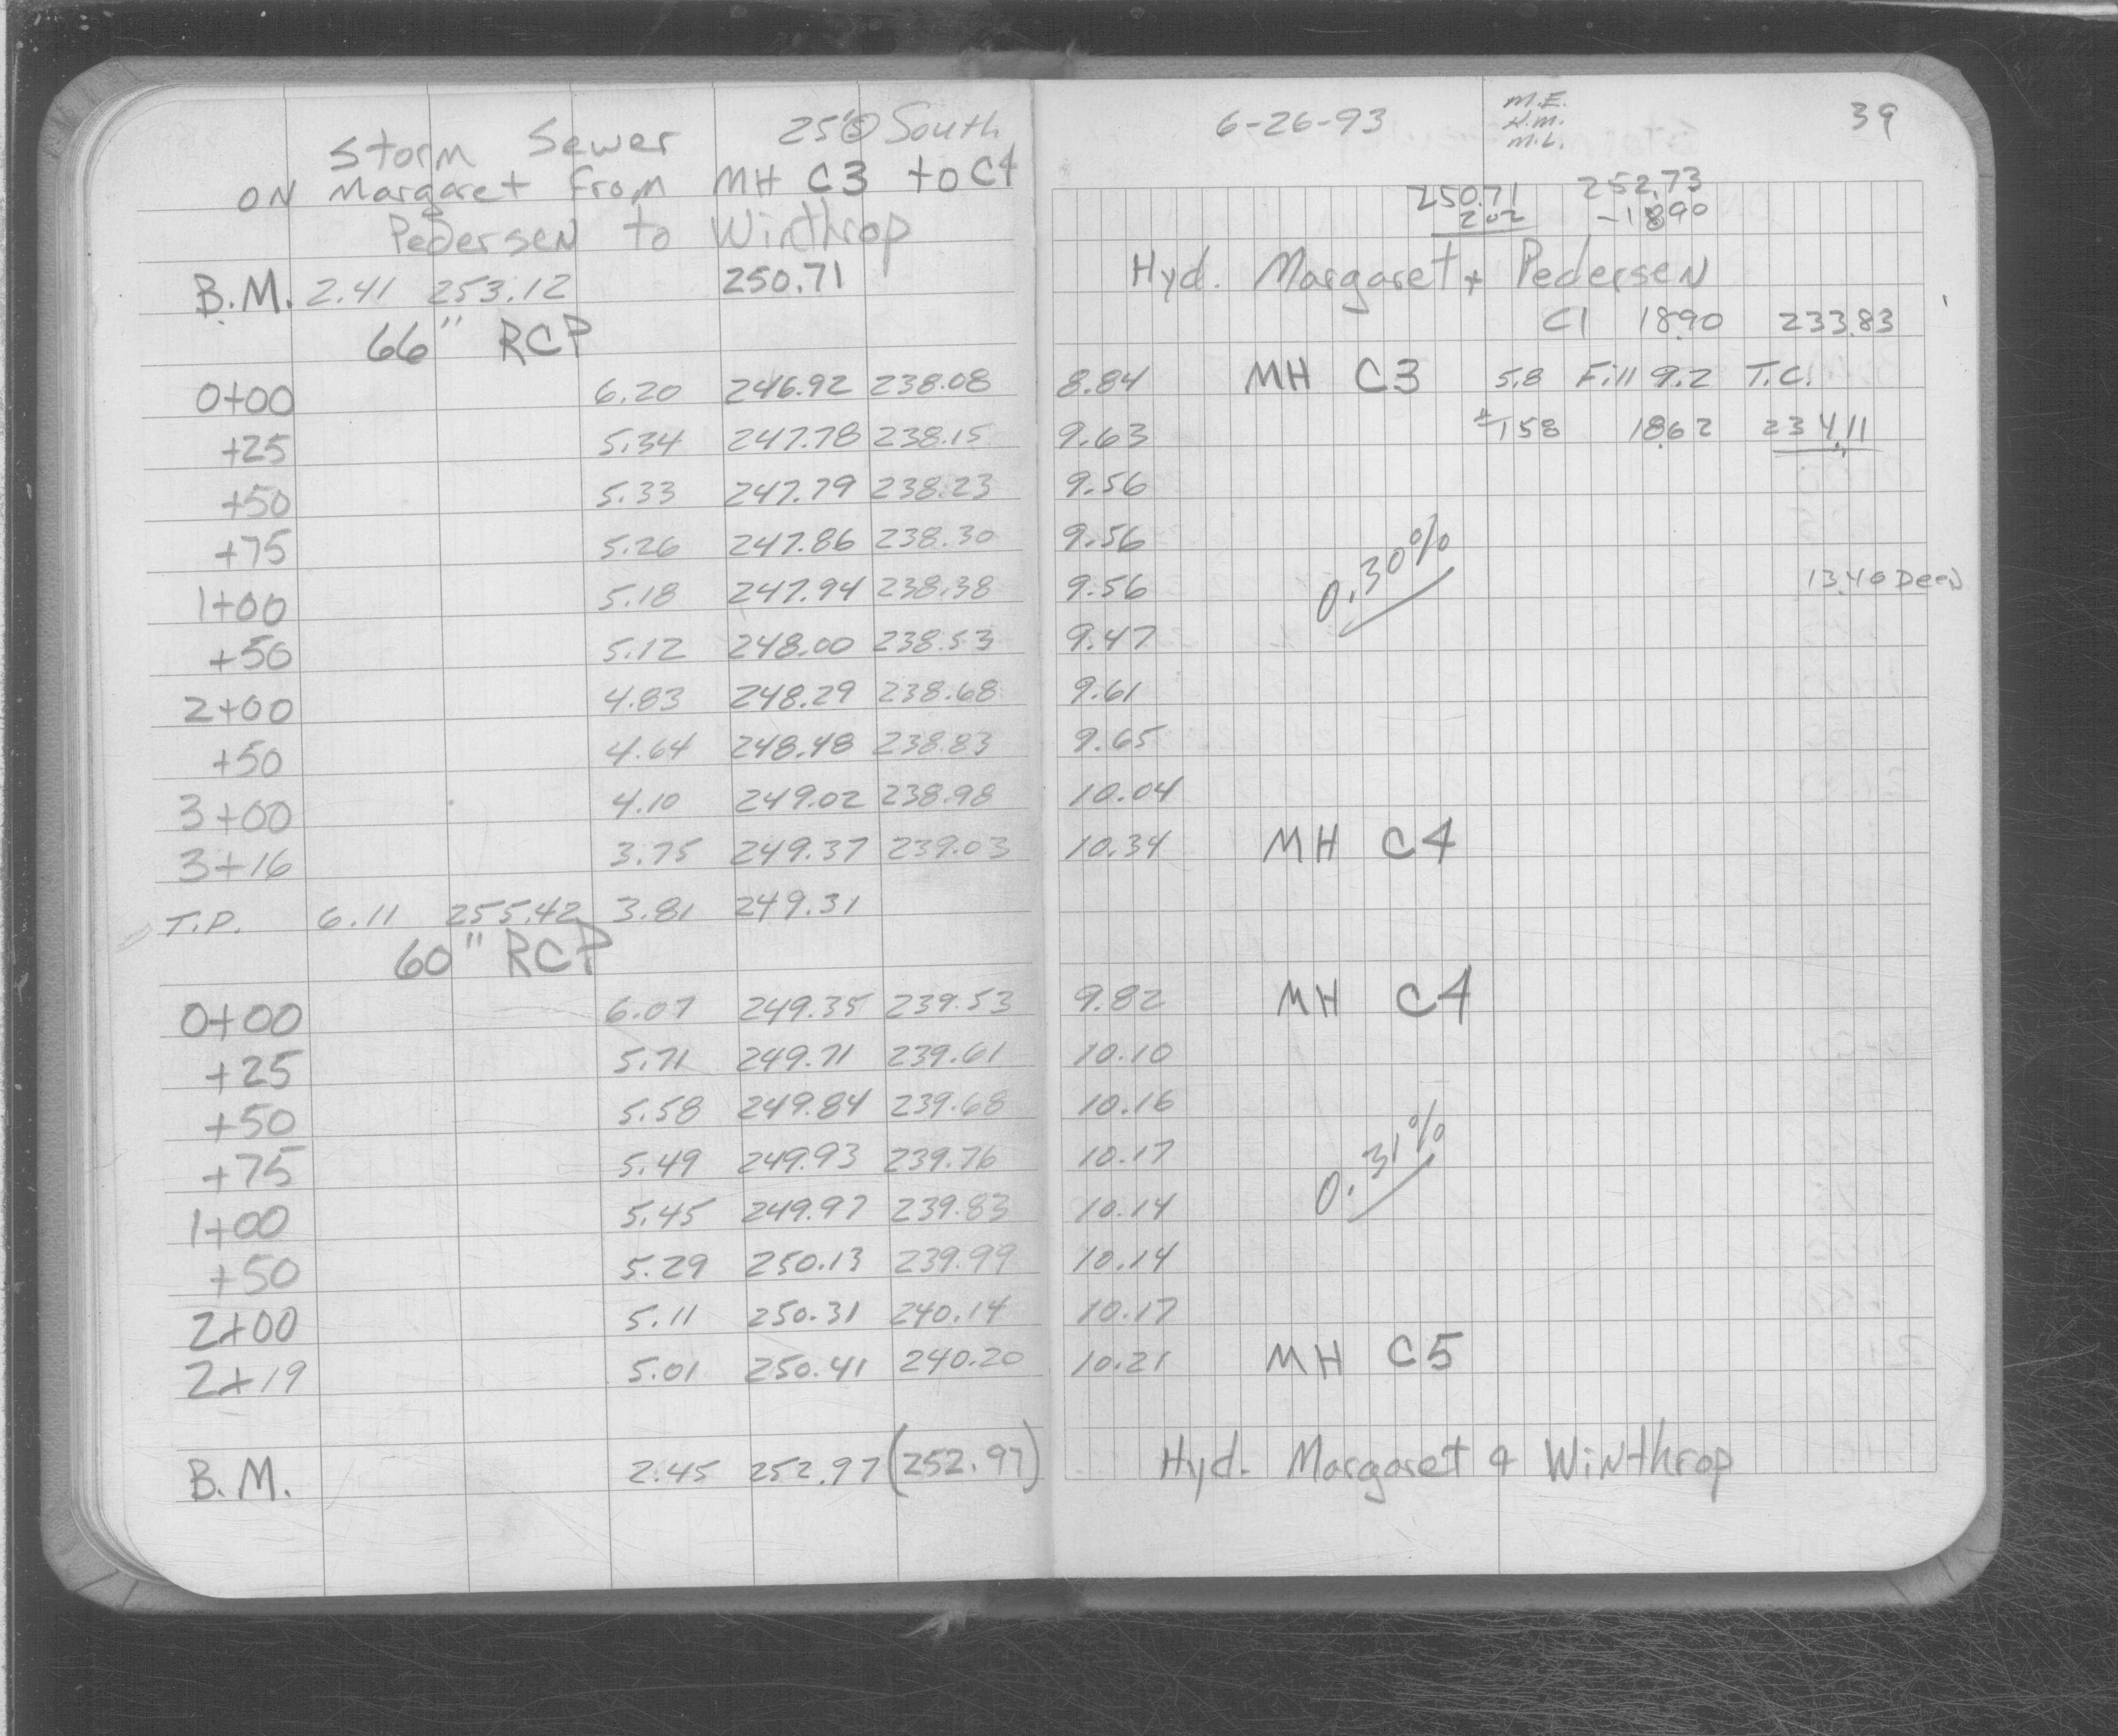 Storm Sewer 25'⑤ South
ON Margaret From MH C3 to C4
Pedersen to Winthrop
B.M. 2.41 253.12 250.71
66" RCP
0+00 6.20 246.92 238.08
+25 5.34 247.78 238.15
+50 5.33 247.79 238.23
+75 5.26 247.86 238.30
1+00 5.18 247.94 238.38
+50 5.12 248.00 238.53
2+00 4.83 248.29 238.68
+50 4.64 248.48 238.83
3+00 4.10 249.02 238.98
3+16 3.75 249.37 239.03
T.P. 6.11 255.42 3.81 249.31
60" RCP
0+00 6.07 249.35 239.53
+25 5.71 249.71 239.61
+50 5.58 249.84 239.68
+75 5.49 249.93 239.76
1+00 5.45 249.97 239.83
+50 5.29 250.13 239.99
2+00 5.11 250.31 240.14
2+19 5.01 250.41 240.20
B.M. 2.45 252.97 (252.97)
6-26-93 M.E. 39
H.M.
M.L.
250.71 252.73
202 -1890
Hyd. Margaret + Pedersen
C1 18.90 233.83
8.84 MH C3 5.8 Fill 9.2 T.C.
9.63 +1.58 18.62 234.11
9.56
9.56 0.30%
9.56 13.40 Deep
9.47
9.61
9.65
10.04
10.34 MH C4
9.82 MH C4
10.10
10.16
10.17 0.31%
10.14
10.14
10.17
10.21 MH C5
Hyd. Margaret & Winthrop